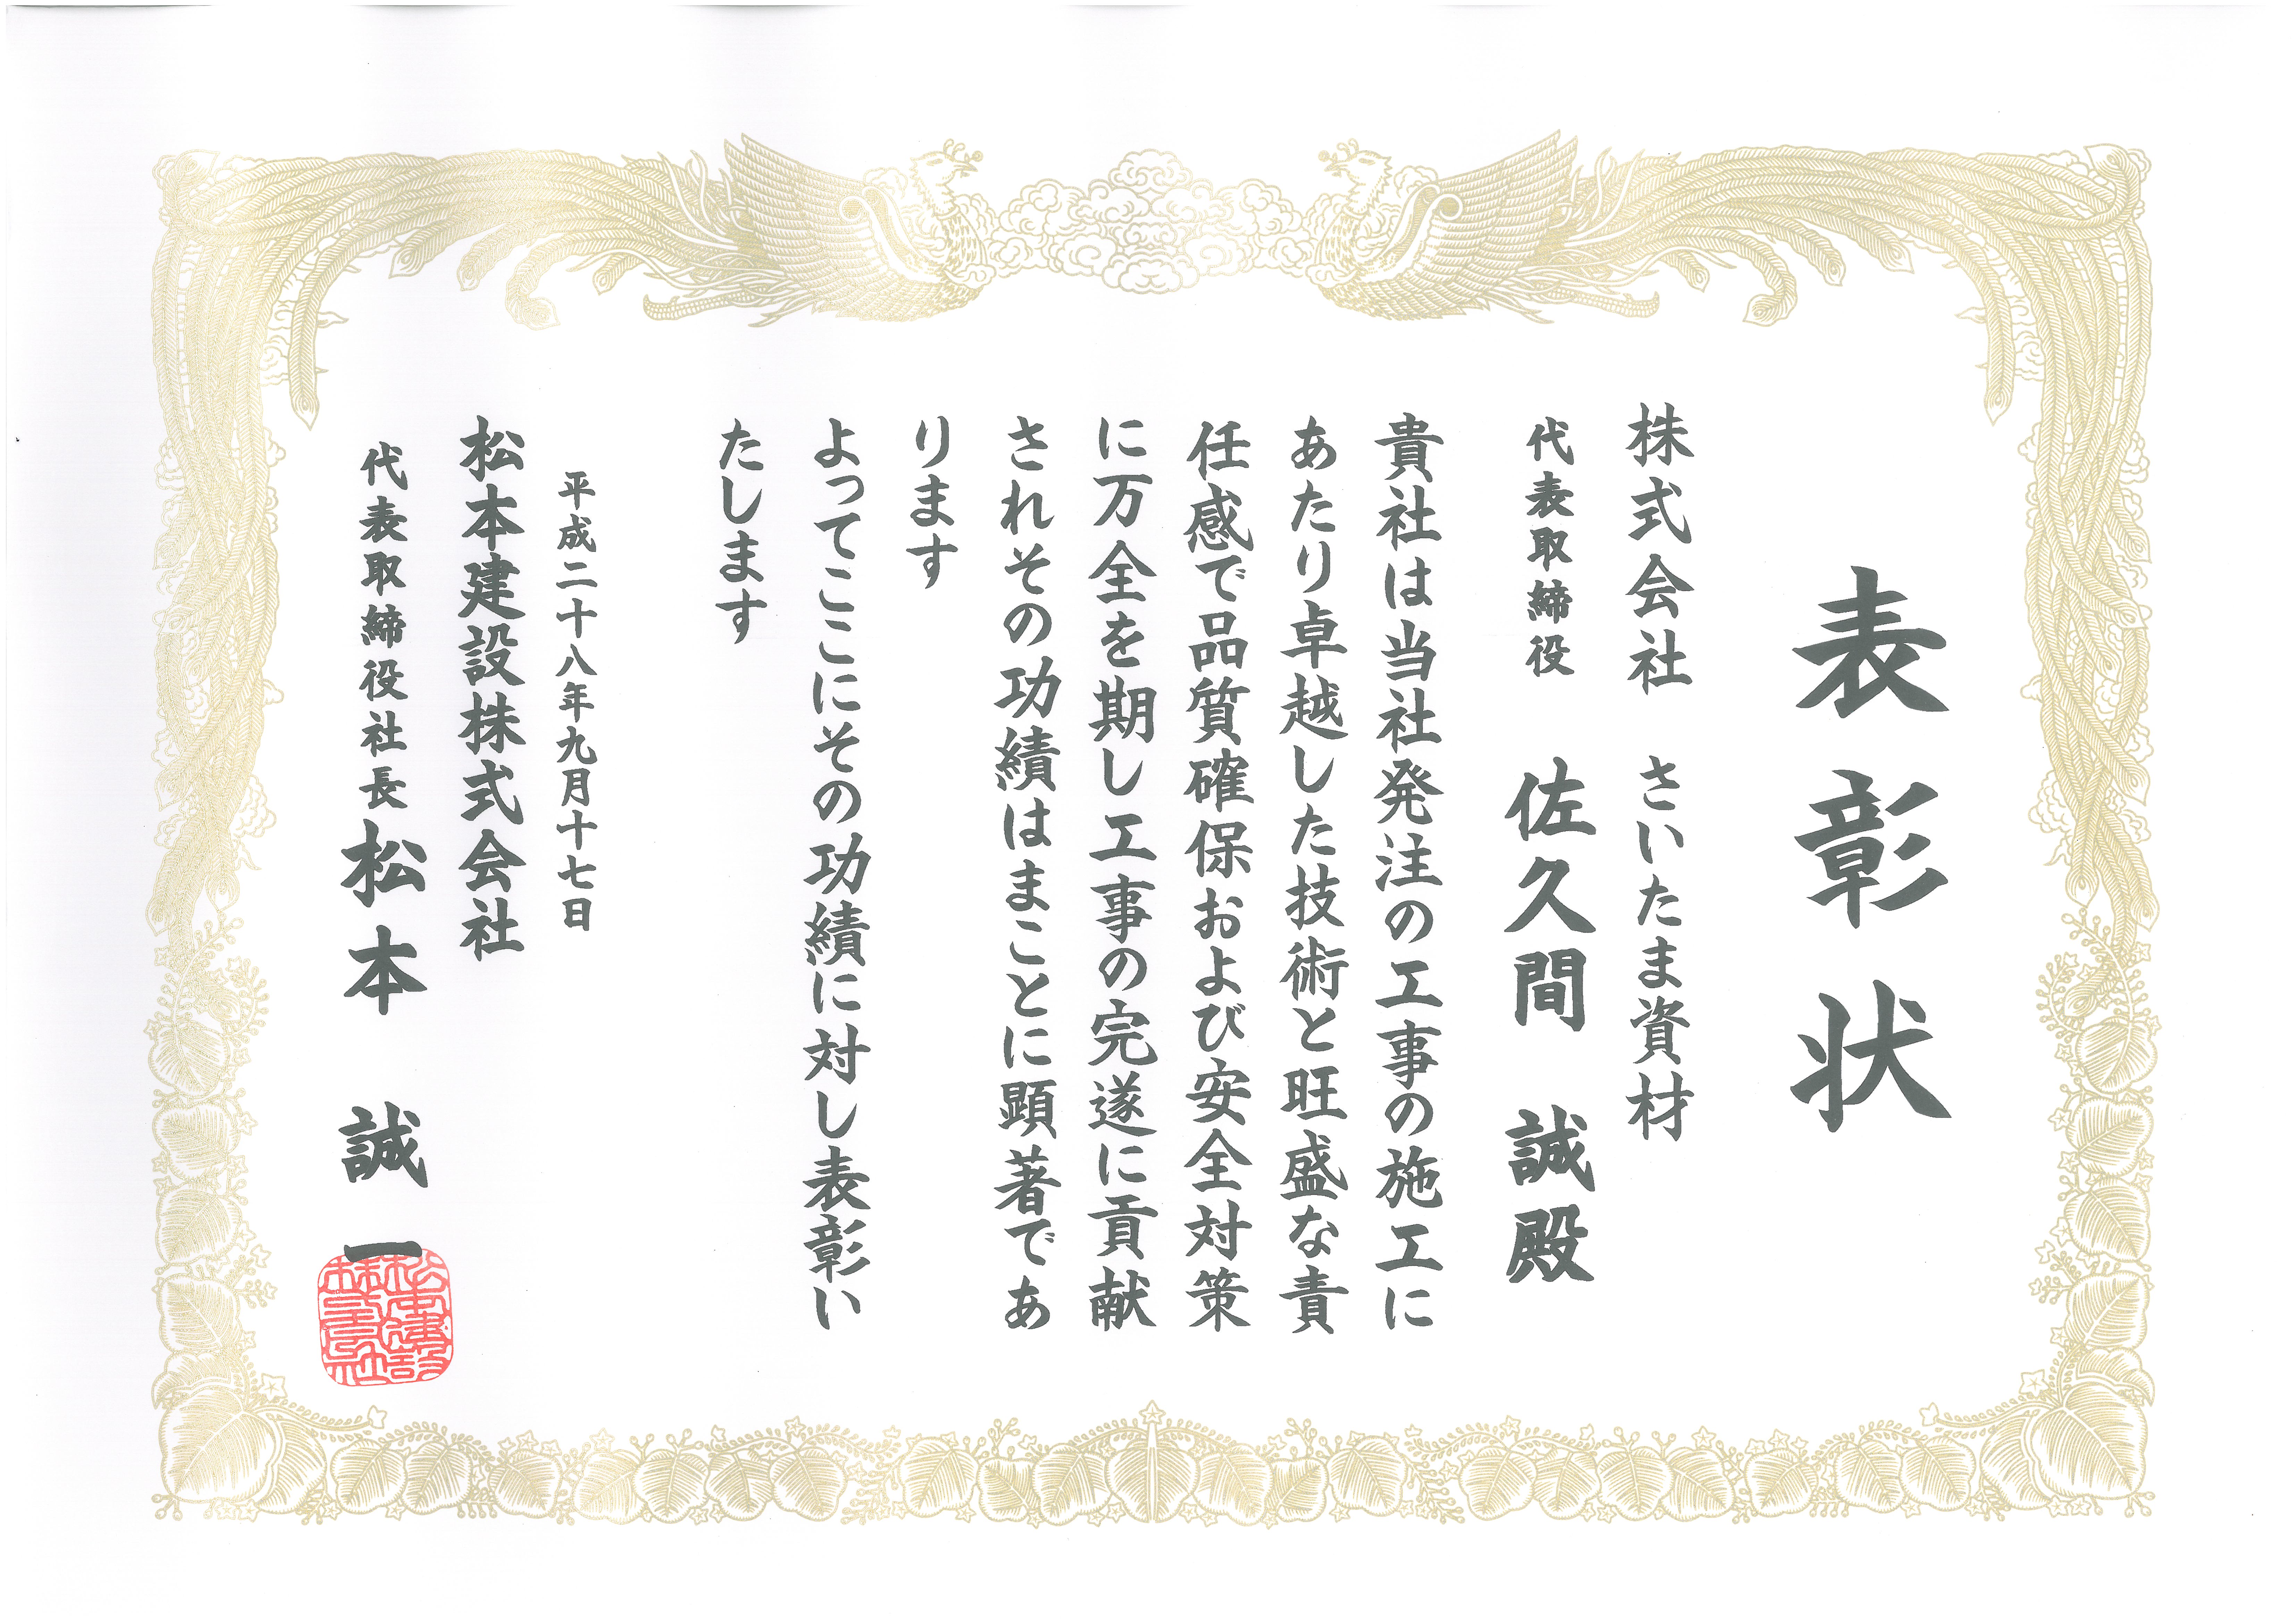 表彰状
株式会社　さいたま資材
代表取締役　佐久間　誠殿
貴社は当社発注の工事の施工に
あたり卓越した技術と旺盛な責
任感で品質確保および安全対策
に万全を期し工事の完遂に貢献
されその功績はまことに顕著であ
ります
よってここにその功績に対し表彰い
たします
平成二十八年九月十七日
松本建設株式会社
代表取締役社長 松本　誠一